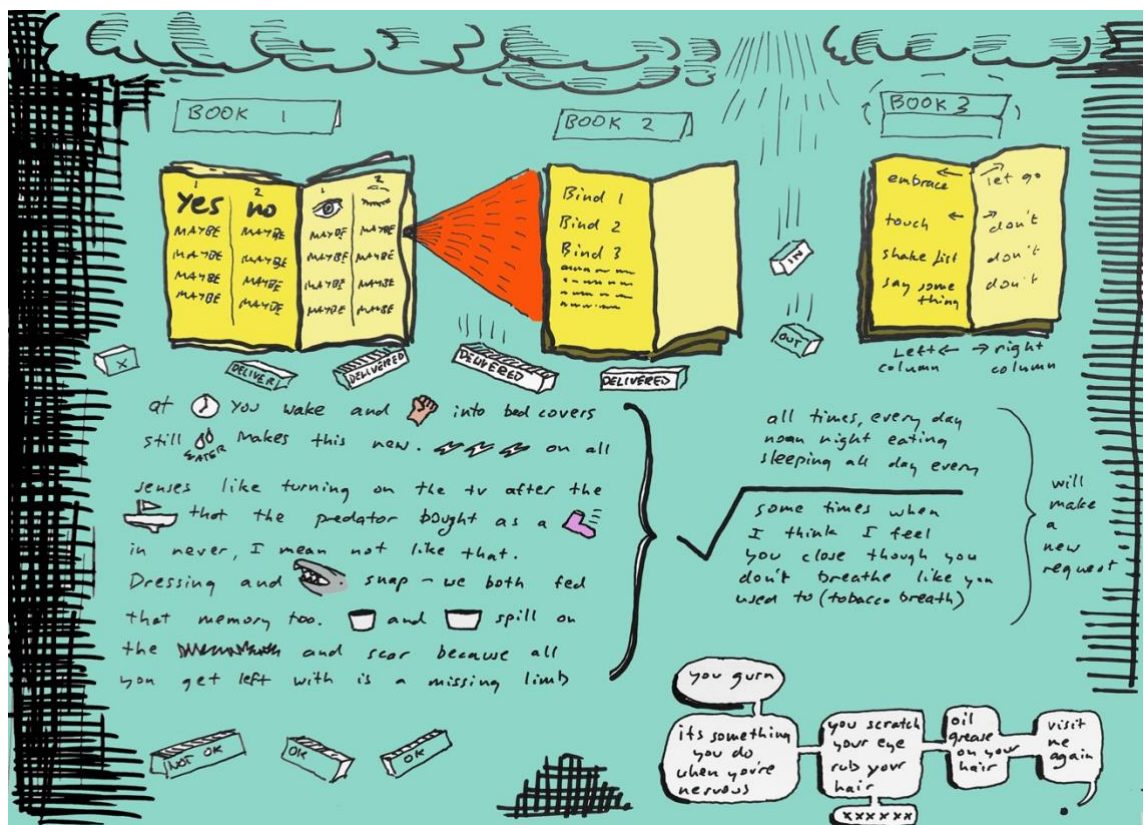 BOOK 1
1 2 1 2
Yes no
MAYBE MAYBE MAYBE MAYBE
MAYBE MAYBE MAYBE MAYBE
MAYBE MAYBE MAYBE MAYBE
MAYBE MAYBE MAYBE MAYBE
BOOK 2
Bind 1
Bind 2
Bind 3
IN
OUT
BOOK 3
embrace ← → let go
touch ← → don't
shake fist don't
say some don't
thing
Left ← → right
column column
X
DELIVER
DELIVERED
DELIVERED
DELIVERED
at you wake and into bed covers
still WATER makes this new. on all
senses like turning on the tv after the
that the predator bought as a
in never, I mean not like that.
Dressing and snap - we both fed
that memory too. and spill on
the and scar because all
you get left with is a missing limb
all times, every day
noon night eating
sleeping all day every
some times when
I think I feel
you close though you
don't breathe like you
used to (tobacco breath)
will
make
a
new
request
NOT OK
OK
OK
you gurn
its something
you do
when you're
nervous
you scratch
your eye
rub your
hair
xxxxxx
oil
grease
on your
hair
visit
me
again